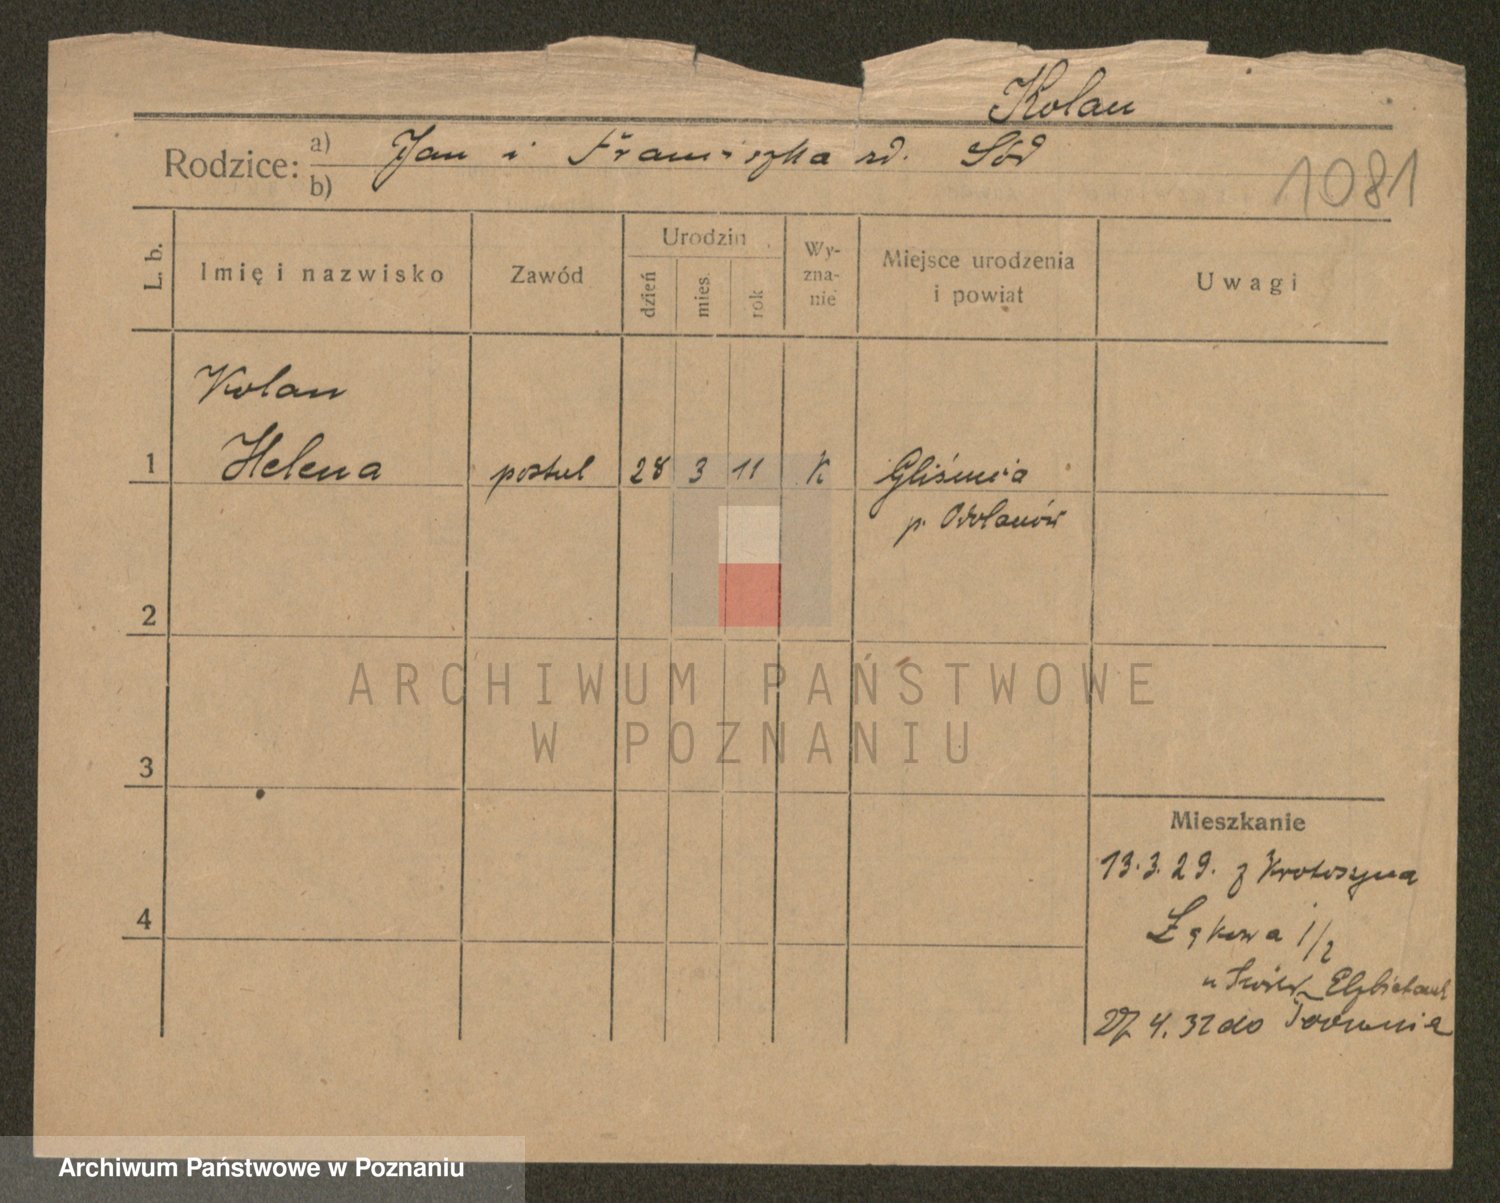 Kolan
Rodzice: a) Jan i Franciszka rd. Sód
b)
1081
L. b.
Imię i nazwisko
Zawód
Urodzin
dzień
mies.
rok
Wy-
zna-
nie
Miejsce urodzenia
i powiat
Uwagi
Kolan
1 Helena postul 28 3 11 K Gliśnica
p. Odolanów
2
ARCHIWUM PAŃSTWOWE
W POZNANIU
3
Mieszkanie
13.3.29. z Krotoszyna
4
Łąkowa 1/2
u Elżbietanek
27 4. 32 do Torunia
Archiwum Państwowe w Poznaniu